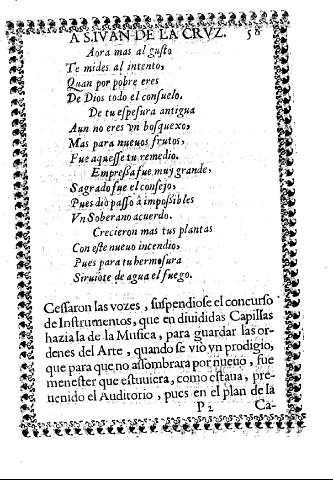 A S. IVAN DE LA CRVZ. 58
Aora mas al gusto
Te mides al intento,
Quan por pobre eres
De Dios todo el consuelo.
De tu espesura antigua
Aun no eres vn bosquexo,
Mas para nueuos frutos,
Fue aquesse tu remedio.
Empressa fue muy grande,
Sagrado fue el consejo,
Pues diò passo à impossibles
Vn Soberano acuerdo.
Crecieron mas tus plantas
Con este nueuo incendio,
Pues para tu hermosura
Siruiote de agua el fuego.
Cessaron las vozes, suspendiose el concurso
de Instrumentos, que en diuididas Capillas
hazia la de la Musica, para guardar las or-
denes del Arte, quando se viò vn prodigio,
que para que no assombrara por nueuo, fue
menester que estuuiera, como estaua, pre-
uenido el Auditorio, pues en el plan de la
P 2 Ca-